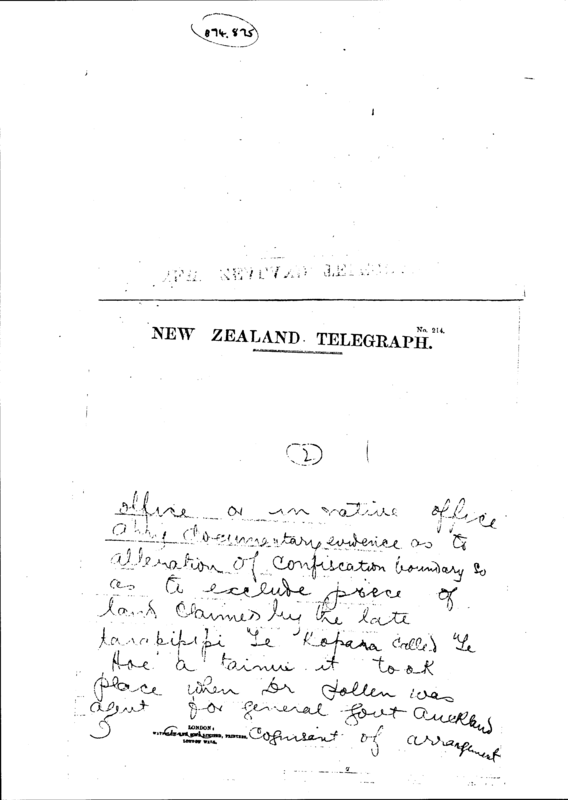 874.825
NEW ZEALAND TELEGRAPH.
No. 214.
2
office or in native office
any documentary evidence as to
alteration of confiscation boundary so
as to exclude piece of
land claimed by the late
tarakipipi Te Kopara called "Te
Hoe a tainui it took
place when Dr Pollen was
agent for general Govt Auckland
Cognisant of arrangement
LONDON:
PRINTERS,
LONDON WALL.